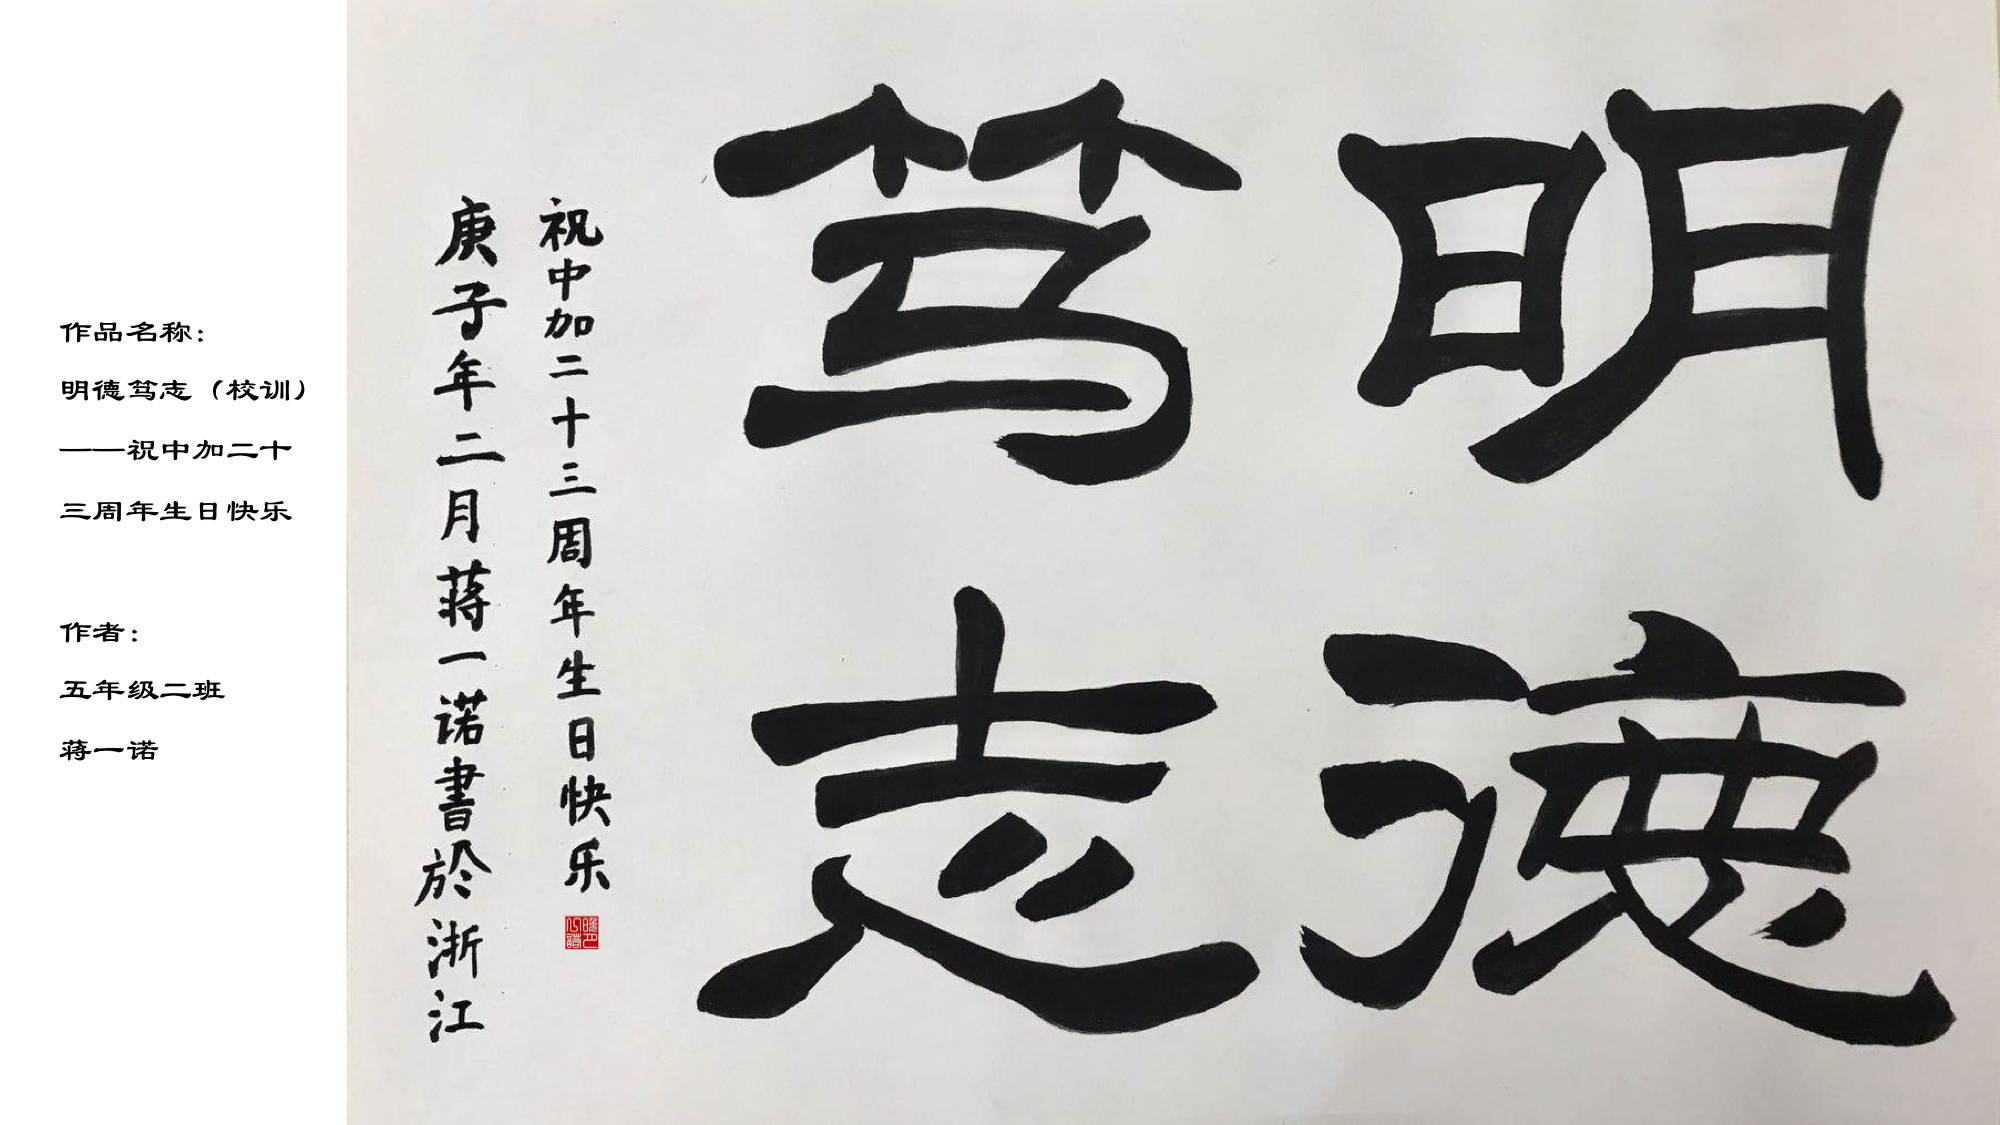 作品名称：
明德笃志（校训）
——祝中加二十
三周年生日快乐
作者：
五年级二班
蒋一诺
明德
笃志
祝中加二十三周年生日快乐
庚子年二月蒋一诺書於浙江